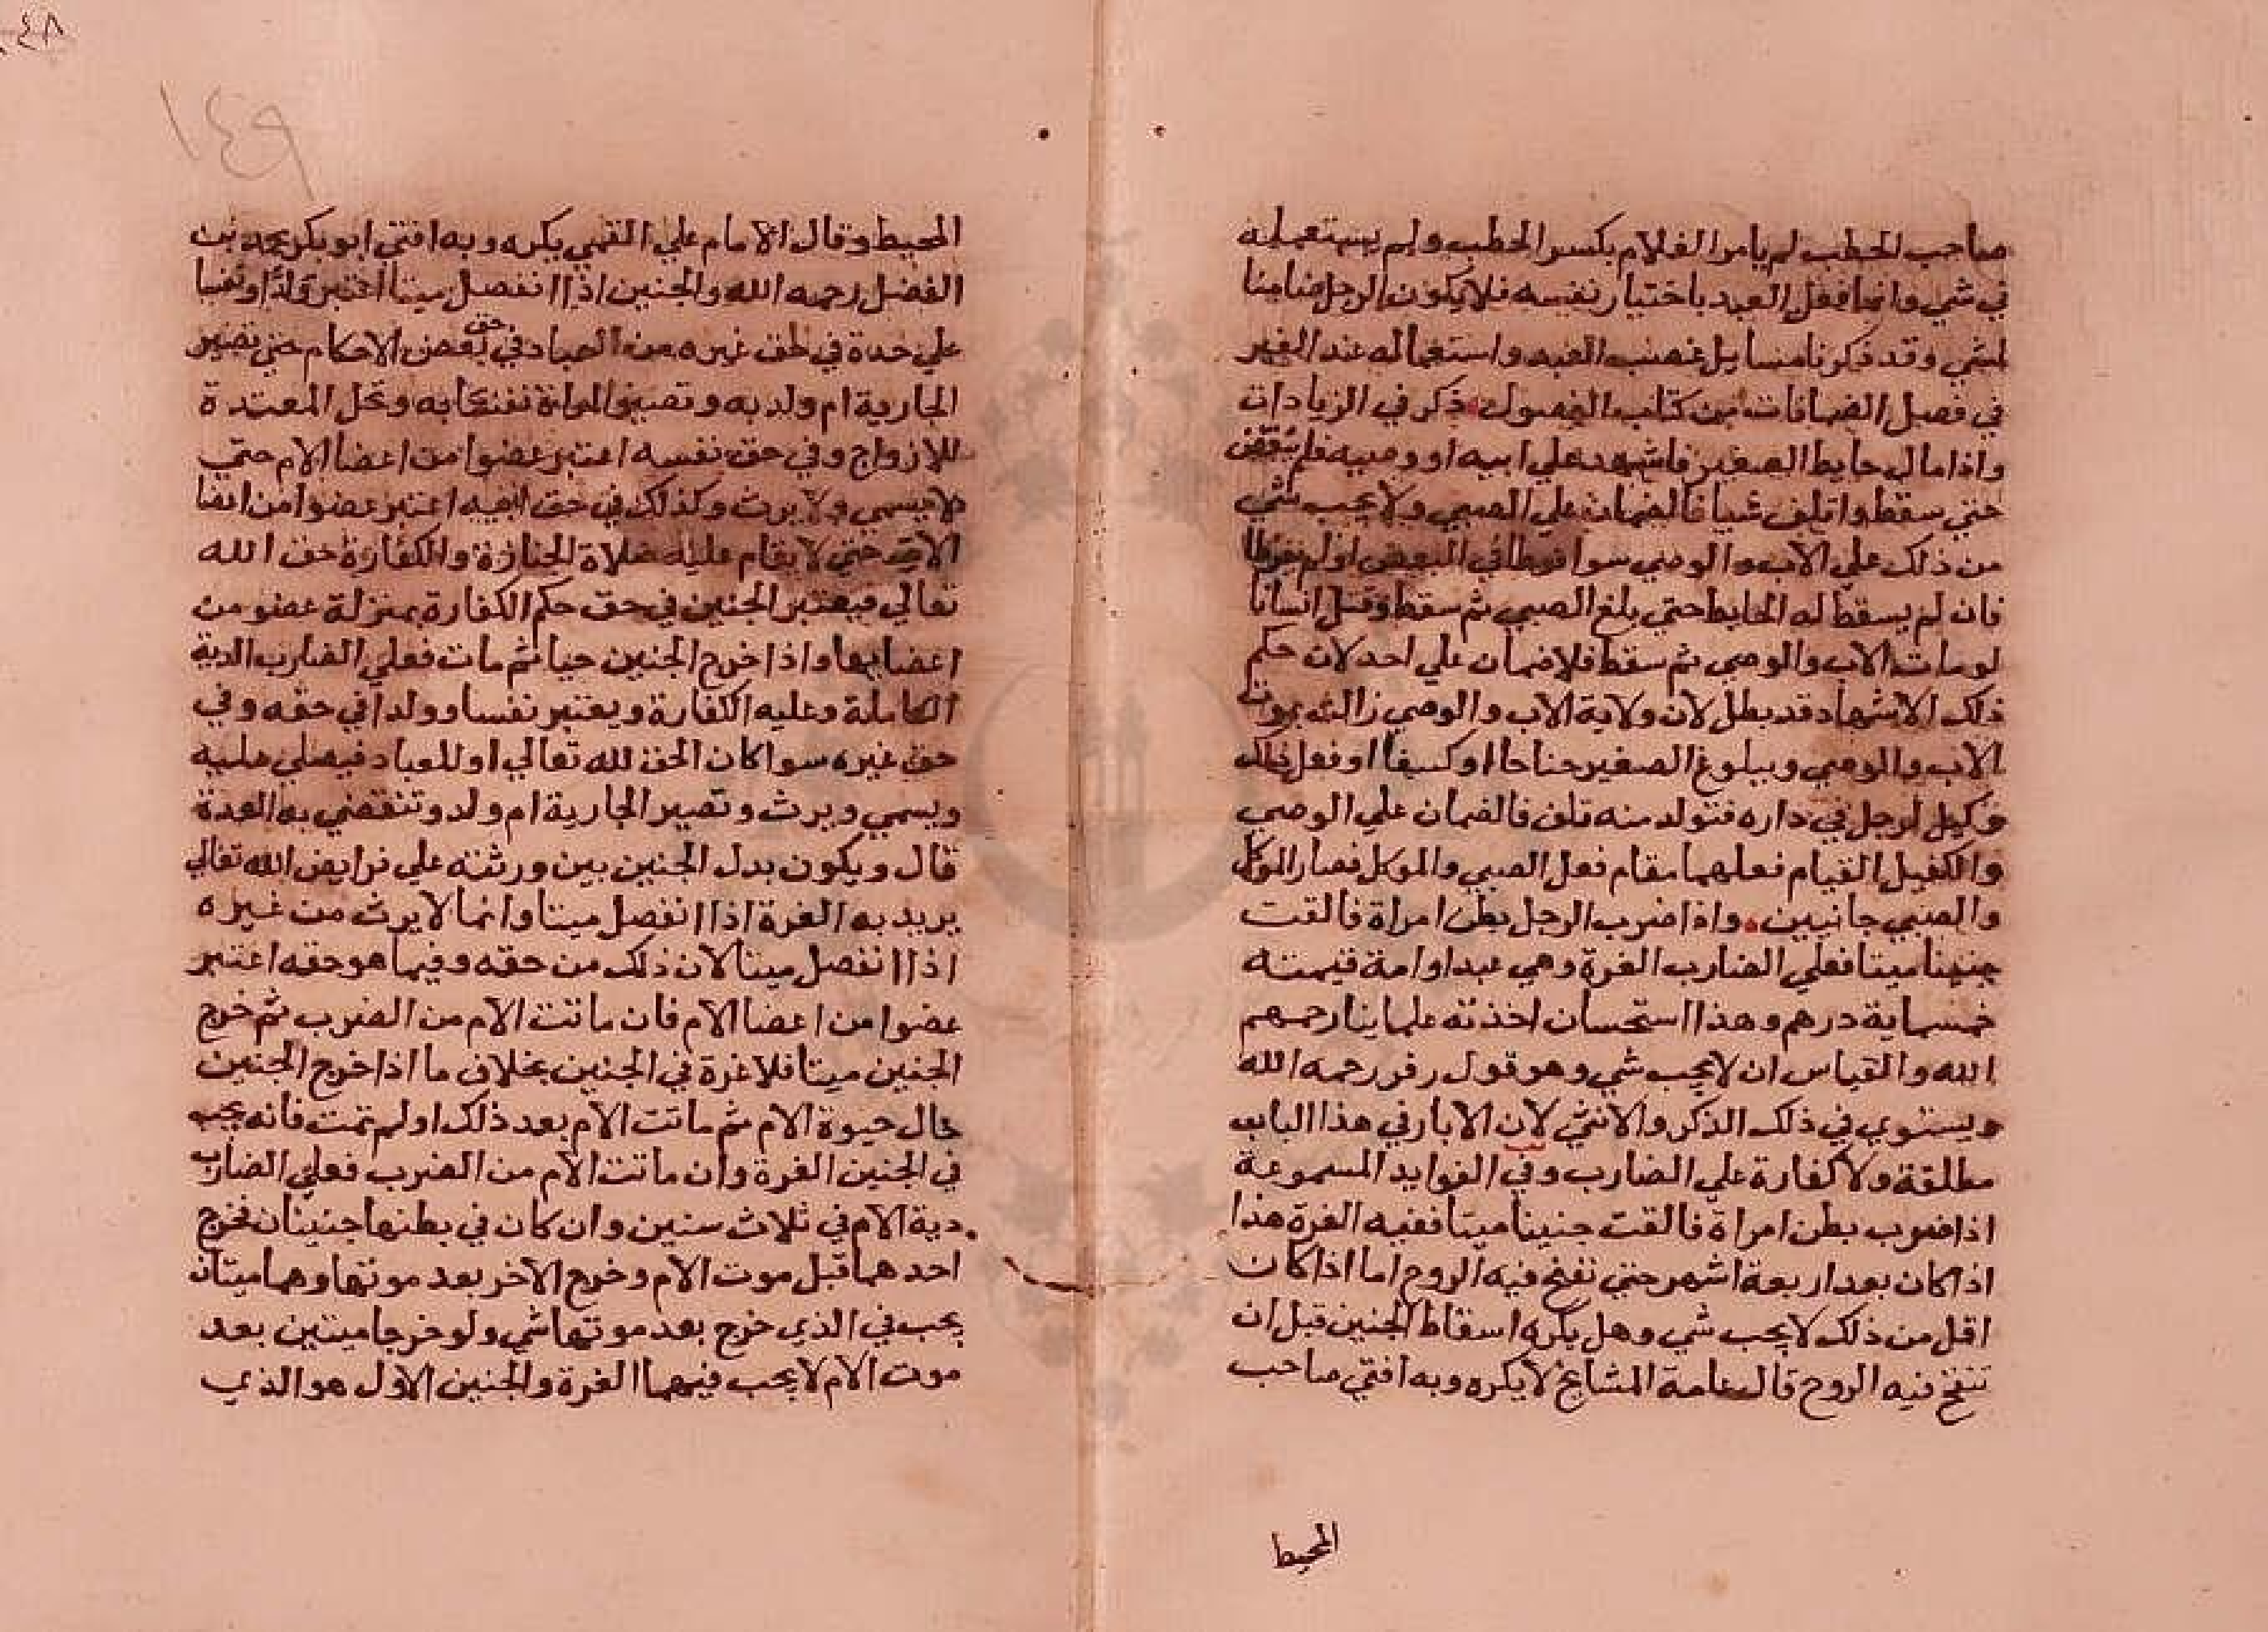 صاحب الحطب لم يامر الغلام بكسر الحطب ولم يستعمله
في شي وانما فعل العبد باختيار نفسه فلا يكون الرجل ضامنا
لشي وقد ذكرنا مسايل غصب العبد واستعماله عند الغير
في فصل الضمانات من كتاب الفصول ذكر في الزيادات
واذا مال حايط الصغير فاشهد علي ابيه او وصيه فلم ينقض
حتي سقط واتلف شيا فالضمان علي الصبي ولا يجب شي
من ذلك علي الاب والوصي سوا فرطا في النقض او لم يفرطا
فان لم يسقط له الحايط حتي بلغ الصبي ثم سقط وقتل انسانا
لو مات الاب والوصي ثم سقط فلا ضمان علي احد لان حكم
ذلك الاشهاد قد بطل لان ولاية الاب والوصي زالت بموت
الاب والوصي وببلوغ الصغير جناحا او كنيفا او فعل ذلك
وكيل لرجل في داره فتولد منه تلف فالضمان علي الوصي
والكفيل القيام فعلهما مقام فعل الصبي والموكل فصار الموكل
والصبي جانيين واذا ضرب الرجل بطن امراة فالقت
جنينا ميتا فعلي الضارب الغرة وهي عبد او امة قيمته
خمسماية درهم وهذا استحسان اخذته علماينا رحمهم
الله والقياس ان لا يجب شي وهو قول زفر رحمه الله
ويستوي في ذلك الذكر والانثي لان الابار في هذا الباب
مطلقة ولا كفارة علي الضارب وفي الفوايد المسموعة
اذا ضرب بطن امراة فالقت جنينا ميتا ففيه الغرة هذا
اذا كان بعد اربعة اشهر حتي نفخ فيه الروح اما اذا كان
اقل من ذلك لا يجب شي وهل يكره اسقاط الجنين قبل ان
تنفخ فيه الروح قال عامة المشايخ لا يكره وبه افتي صاحب
المحيط
١٤٩
المحيط وقال الامام علي القمي يكره وبه افتي ابو بكر محمد بن
الفضل رحمه الله والجنين اذا انفصل ميتا اعتبر ولدا ونفسا
علي حدة في حق غيره من العباد في حق بعض الاحكام حتي تصير
الجارية ام ولد به وتصير المراة نفسا به وتحل المعتدة
للازواج وفي حق نفسه اعتبر عضوا من اعضا الام حتي
لا يسمي ولا يرث وكذلك في حق ابيه اعتبر عضوا من اعضا
الام حتي لا يقام عليه صلاة الجنازة والكفارة حق الله
تعالي فيعتبر الجنين في حق حكم الكفارة بمنزلة عضو من
اعضايها واذا خرج الجنين حيا ثم مات فعلي الضارب الدية
الكاملة وعليه الكفارة ويعتبر نفسا وولدا في حقه وفي
حق غيره سوا كان الحق لله تعالي او للعباد فيصلي عليه
ويسمي ويرث وتصير الجارية ام ولد وتنقضي به العدة
قال ويكون بدل الجنين بين ورثته علي فرايض الله تعالي
يريد به الغرة اذا انفصل ميتا وانما لا يرث من غيره
اذا انفصل ميتا لان ذلك من حقه وفيما هو حقه اعتبر
عضوا من اعضا الام فان ماتت الام من الضرب ثم خرج
الجنين ميتا فلا غرة في الجنين بخلاف ما اذا خرج الجنين
حال حيوة الام ثم ماتت الام بعد ذلك او لم تمت فانه يجب
في الجنين الغرة وان ماتت الام من الضرب فعلي الضارب
دية الام في ثلاث سنين وان كان في بطنها جنينان فخرج
احدهما قبل موت الام وخرج الاخر بعد موتها وهما ميتان
يجب في الذي خرج بعد موتها شي ولو خرجا ميتين بعد
موت الام لا يجب فيهما الغرة والجنين الاول هو الذي